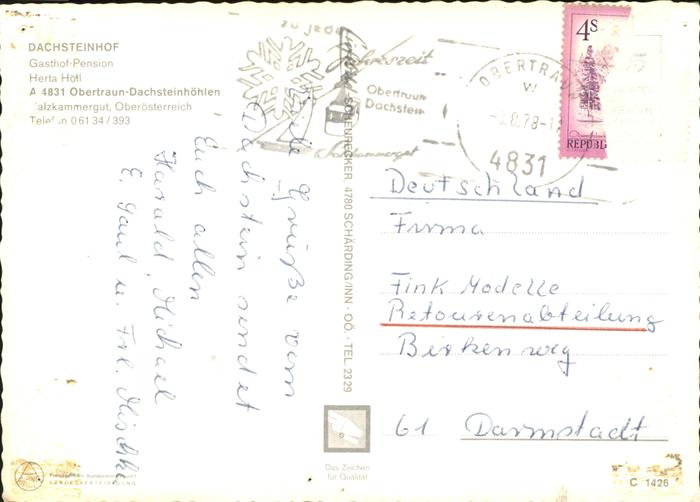 DACHSTEINHOF
Gasthof-Pension
Herta Höll
A 4831 Obertraun-Dachsteinhöhlen
Salzkammergut, Oberösterreich
Telefon 061 34 / 393
zu jeder
Jahreszeit
Obertraun
Dachstein
Salzkammergut
OBERTRAUN
.8.78-1
4831
4S
REPUBL
Viele Grüße vom
Dachstein sendet
Euch allen
Harald, Michael
E. Gaul u. Frl. Mischke
SCHÄRDING/INN · OÖ. · TEL 2329
4780
Deutschland
Firma
Fink Modelle
Retourenabteilung
Birkenweg
61 Darmstadt
Das Zeichen
für Qualität
LANDESVERTEIDIGUNG
C 1426